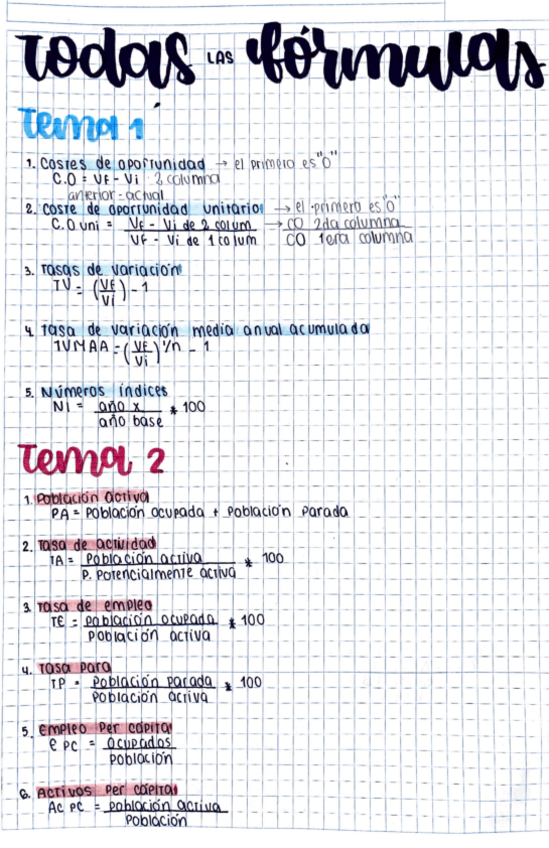 todas LAS fórmulas
Tema 1
1. Costes de oportunidad → el primero es "0"
C.O = VF - Vi 2 columna
anterior - actual
2. Coste de oportunidad unitario → el primero es "0"
C.O uni = VF - Vi de 2 colum → CO 2da columna
VF - Vi de 1 colum CO 1era columna
3. Tasas de variación
TV = (VF/Vi) - 1
4 Tasa de variación media anual acumulada
TVMAA = (VF/Vi)^1/n - 1
5. Números índices
NI = año x * 100
año base
Tema 2
1. Población activa
PA = Población ocupada + Población Parada
2. Tasa de actividad
TA = Población activa * 100
P. Potencialmente activa
3. Tasa de empleo
TE = población ocupada * 100
Población activa
4. Tasa Paro
TP = Población parada * 100
Población activa
5. Empleo Per cápita
e PC = ocupados
Población
6. Activos Per cápita
Ac PC = población activa
Población